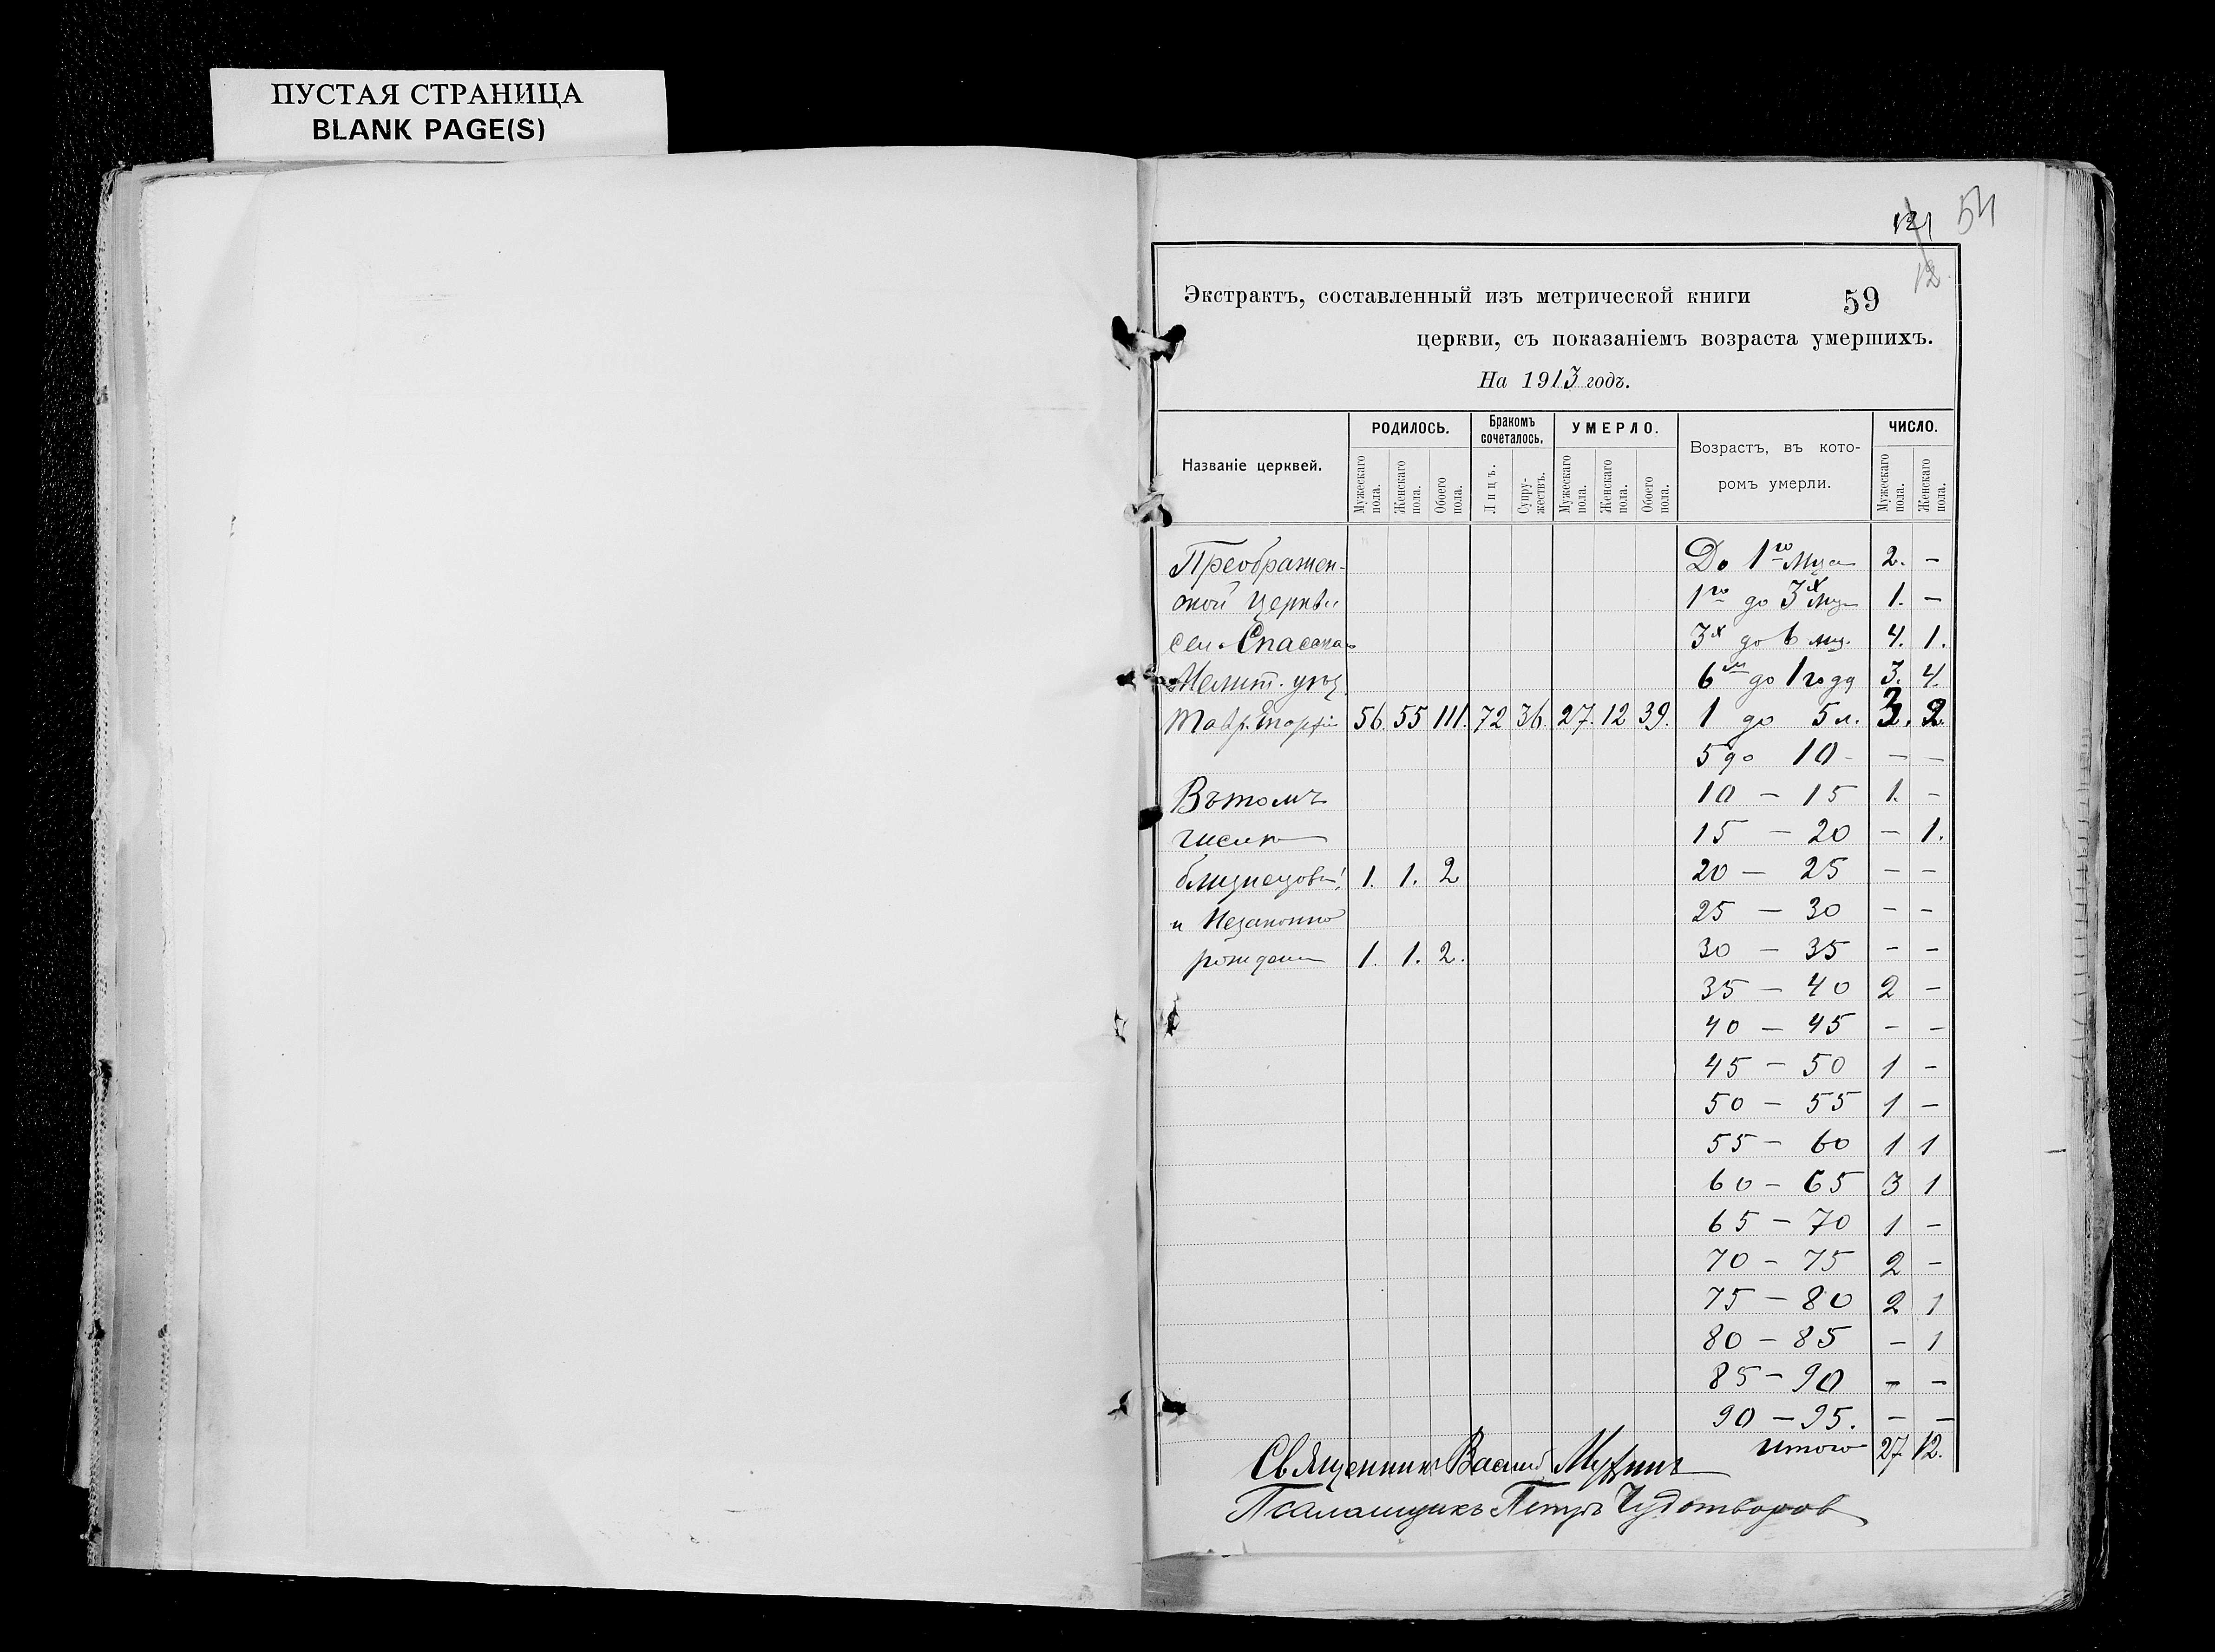 ПУСТАЯ СТРАНИЦА
BLANK PAGE(S)
54
12
Экстрактъ, составленный изъ метрической книги 59
церкви, съ показаніемъ возраста умершихъ.
На 1913 годъ.
Названіе церквей. РОДИЛОСЬ. Бракомъ сочеталось. УМЕРЛО. Возрастъ, въ кото-ромъ умерли. ЧИСЛО.
Мужескаго пола. Женскаго пола. Обоего пола. Лицъ. Супру-жествъ. Мужескаго пола. Женскаго пола. Обоего пола. Мужескаго пола. Женскаго пола.
Преображен- До 1го Мца 2. –
ской Церкви 1го до 3х Мц 1. –
сел. Спасска 3х до 6 мц. 4. 1.
Мелит. уѣз. 6 м до 1 году 3. 4.
Тавр. Епархіи 56. 55 111. 72 36. 27. 12 39. 1 до 5 л. 3. 2.
5 до 10 – – –
Въ томъ 10 – 15 1. –
числѣ 15 – 20 – 1.
близнецовъ 1. 1. 2 20 – 25 – –
и Незаконно 25 – 30 – –
рожден 1. 1. 2. 30 – 35 – –
35 – 40 2 –
40 – 45 – –
45 – 50 1 –
50 – 55 1 –
55 – 60 1 1
60 – 65 3 1
65 – 70 1 –
70 – 75 2 –
75 – 80 2 1
80 – 85 – 1
85 – 90 – –
90 – 95. – –
Итого 27 12.
Священникъ Василій
Псаломщикъ Петръ Чудотворов